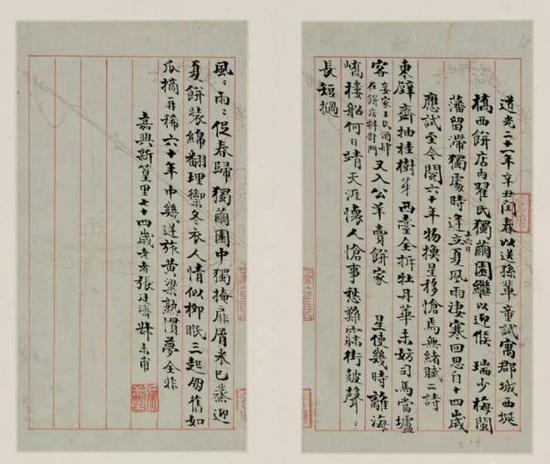 道光二十一年辛丑閏春以送孫輩童試寓郡城西埏
橋西餅店內翟氏獨繭園繼以迎候 瑞少梅閩
藩留滯獨處時逢立夏風雨淒寒回思自十四歲
十六日
應試至今閱六十年物換星移愴焉無緒賦二詩
東 齋抽桂樹芽西臺全拆牡丹華未妨司馬當壚
客 家王氏酒肆在餅店斜對門 又入公羊賣餅家 星使幾時離海
嶠樓船何日靖天涯懷人愴事愁難寐街鼓聲〻
長短撾
風〻雨〻促春歸獨繭園中獨掩扉屑米已蒸迎
夏餅裝綿翻理禦冬衣人情似柳眠三起朋舊如
瓜摘再稀六十年中幾逆旅黃粱熟 夢全非
嘉興新篁里七十四歲老者張廷濟 未甫